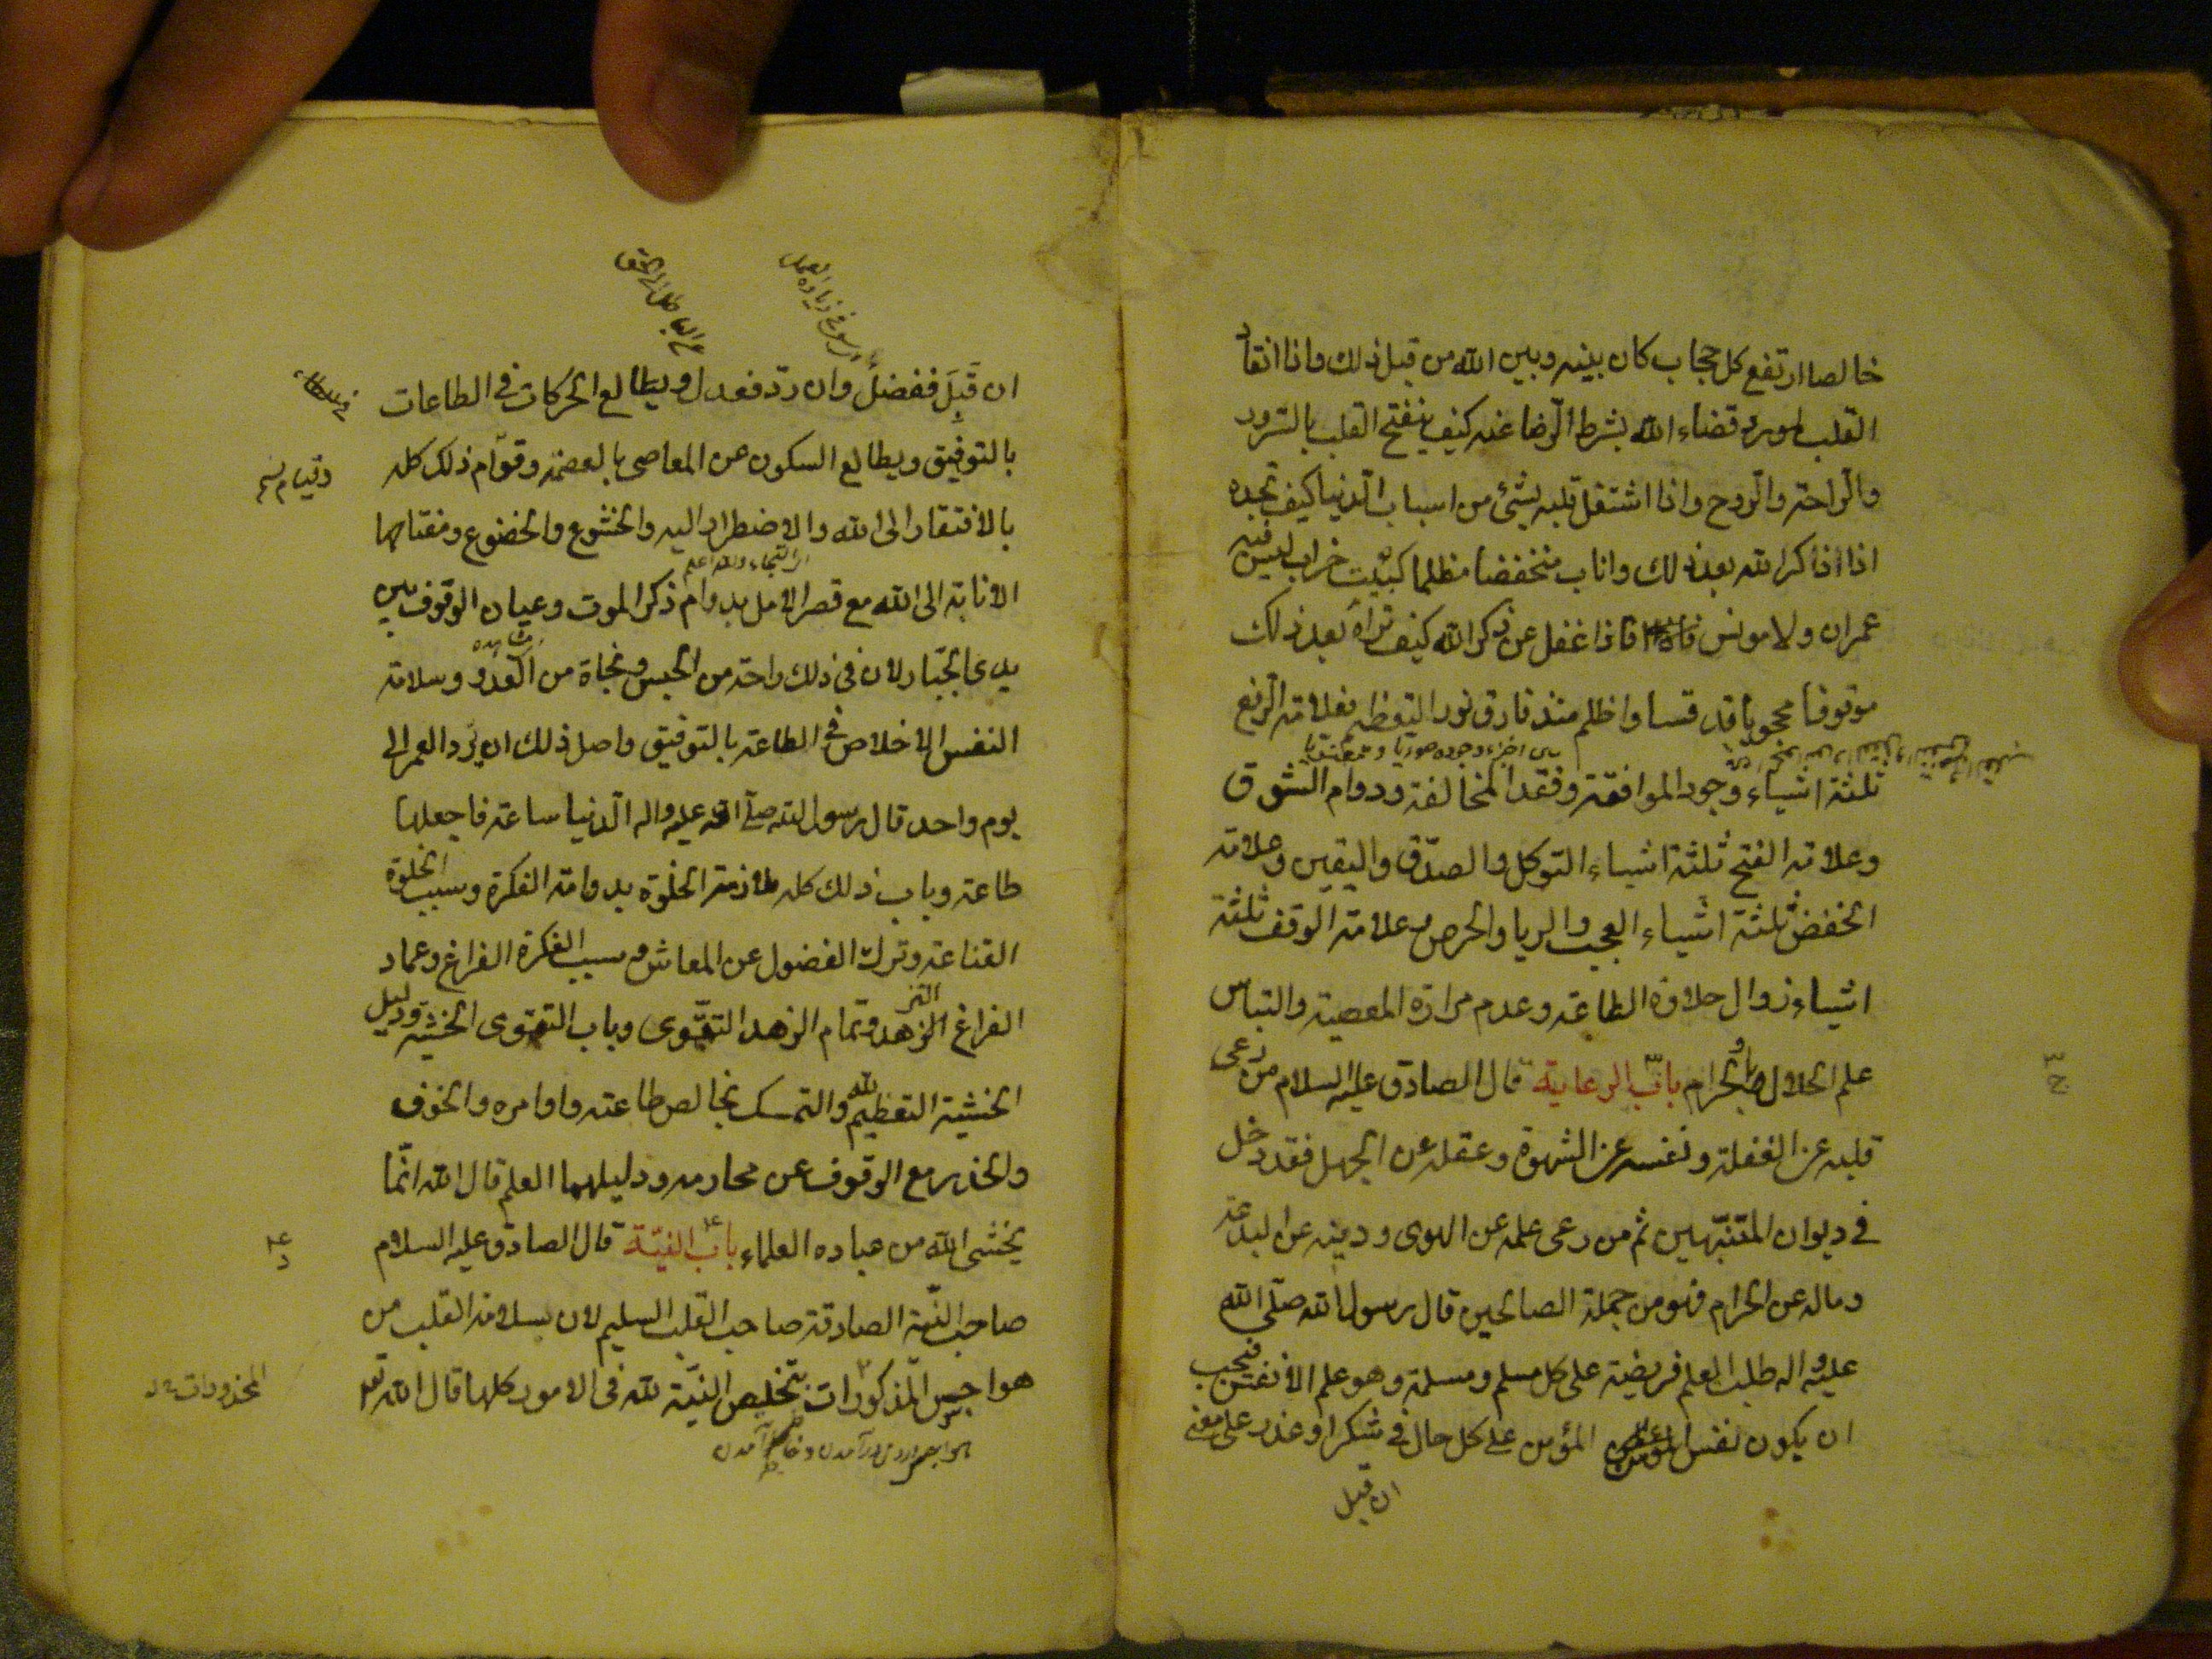 خالصا ارتفع كل حجاب كان بينه وبين الله من قبل ذلك واذا انقاد
القلب لمورد قضاء الله بشرط الرّضا عنه كيف ينفتح القلب بالسّرور
والرّاحة والرّوح واذا اشتغل قلبه بشئ من اسباب الدّنيا كيف تجده
اذا اذا ذكر الله بعد ذلك واناب منخفضا مظلما كبيت خراب ليس فيه
عمران ولا مونس فاذا غفل عن ذكر الله كيف تراه بعد ذلك
موقوفا محجوبا قد قسا واظلم منذ فارق نور التعظيم فعلامة الرّفع
ثلثة اشياء وجود الموافقة وفقد المخالفة ودوام الشوق
وعلامة الفتح ثلثة اشياء التوكل والصدق واليقين وعلامة
الخفض ثلثة اشياء العجب والريا والحرص وعلامة الوقف ثلثة
اشياء زوال حلاوة الطاعة وعدم مرارة المعصية والتباس
علم الحلال والحرام باب الرعاية قال الصادق عليه السلام من رعى
قلبه عن الغفلة ونفسه عن الشهوة وعقله عن الجهل فقد دخل
في ديوان المتنبّهين ثم من رعى علمه عن الهوى ودينه عن البدعة
وماله عن الحرام فهو من جملة الصالحين قال رسول الله صلّى الله
عليه واله طلب العلم فريضة على كل مسلم ومسلمة وهو علم الانفس فيجب
ان يكون نفس المؤمن على كل حال في شكر او عذر على معنى
ان قبل
ان قَبِلَ ففضلٌ وان ردّ فعدل ويطالع الحركات في الطاعات
بالتوفيق ويطالع السكون عن المعاصى بالعصمة وقوّام ذلك كله
وقيام
بالافتقار الى الله والاضطرار اليه والخشوع والخضوع ومفتاحها
الانابة الى الله مع قصر الامل بدوام ذكر الموت وعيان الوقوف بين
يدى الجبّار لان في ذلك راحة من الحبس ونجاة من العدو وسلامة
النفس والاخلاص في الطاعة بالتوفيق واصل ذلك ان يردّ العمر الى
يوم واحد قال رسول الله صلّى الله عليه واله الدّنيا ساعة فاجعلها
طاعة وباب ذلك كله ملازمة الخلوة بدوامة الفكرة وسبب الخلوة
القناعة وترك الفضول عن المعاش وسبب الفكرة الفراغ وعماد
الفراغ الزهد وتمام الزهد التقوى وباب التقوى الخشية ودليل
الخشية التعظيم لله والتمسك بخالص طاعته واوامره والخوف
والحذر مع الوقوف عن محارمه ودليلهما العلم قال الله انّما
يخشى الله من عباده العلماء باب النيّة قال الصادق عليه السلام
صاحب النيّة الصادقة صاحب القلب السليم لان سلامة القلب من
هواجس المذكورات بتخليص النيّة لله في الامور كلها قال الله تعا
المحذورات